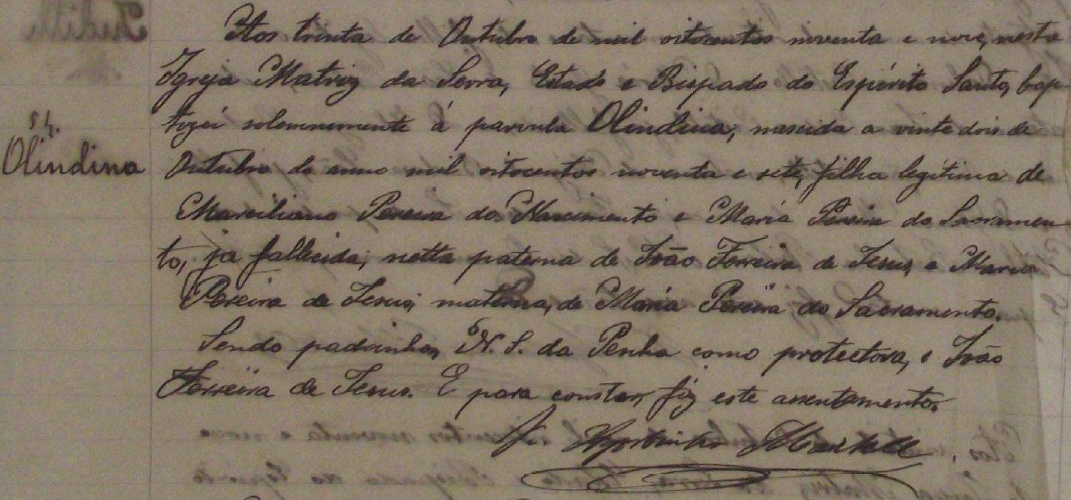 Aos trinta de Outubro de mil oitocentos noventa e nove, nesta
Igreja Matriz da Serra, Estado e Bispado do Espirito Santo, bap-
tizei solemnemente á parvula Olindina, nascida a vinte dois de
54.
Olindina
Outubro do anno mil oitocentos noventa e sete, filha legitima de
Marciliano Pereira do Nascimento e Maria Pereira do Sacramen-
to, já fallecida; netta paterna de João Ferreira de Jesus e Maria
Pereira de Jesus; materna, de Maria Pereira do Sacramento.
Sendo padrinhos, N. S. da Penha como protectora, e João
Ferreira de Jesus. E para constar, fiz este assentamento.